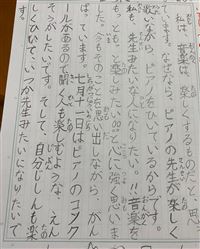 私は、音楽は、楽しくするものだと思い
ます。なぜなら、ピアノの先生が楽しく
ピアノをひいているからです。
先生みたいな人になりたい!!音楽を
もっともっと楽しみたい。と心に強く思いま
した。今もそのことを思い出しながら、がん
ばっています。七月十一日はピアノのコンク
ールがあるので聞く人も楽しむような、えん
そうがしたいです。そして、自分じしんも楽
しくひいて、いつか先生みたいになりたいで
す。